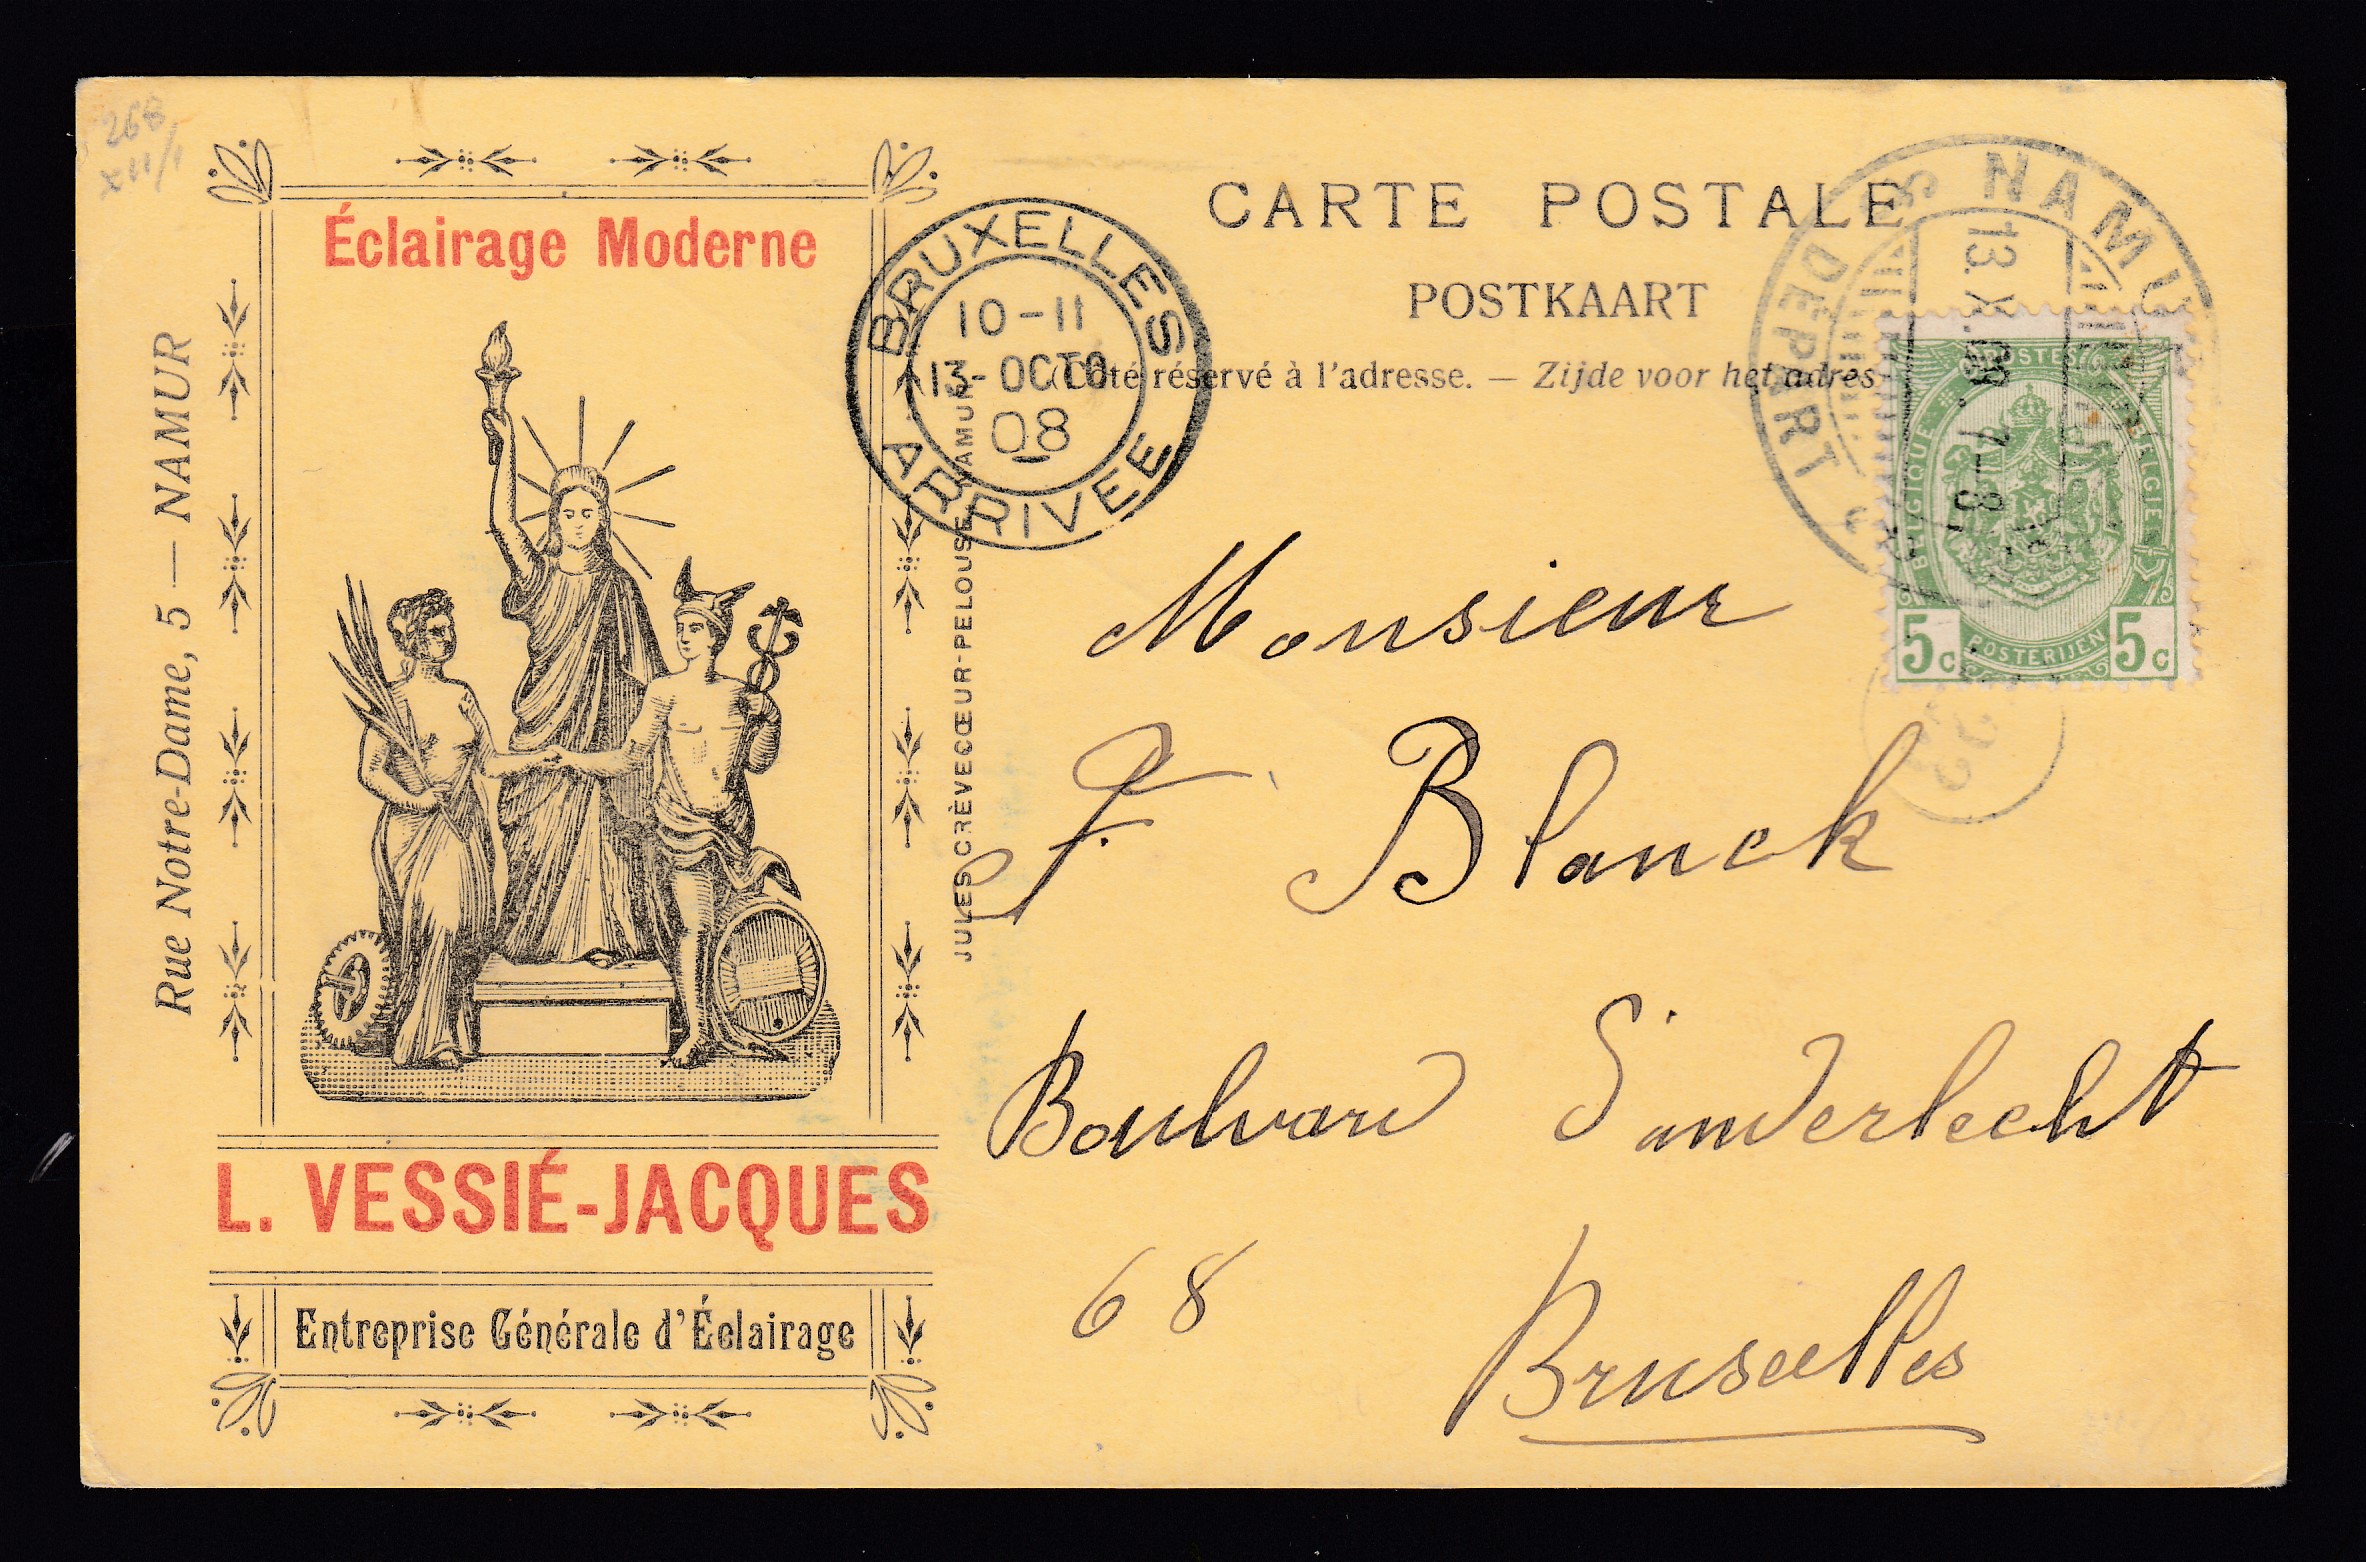 268
XII/1
Éclairage Moderne
Rue Notre-Dame, 5 — NAMUR
L. VESSIÉ-JACQUES
Entreprise Générale d'Éclairage
JULES CRÈVECŒUR-PELOUSE, NAMUR
BRUXELLES
10-11
13-OCTO
08
ARRIVEE
CARTE POSTALE
POSTKAART
(Côté réservé à l'adresse. — Zijde voor het adres
NAMUR
13. X. 08. 7-8
DEPART
POSTES
BELGIQUE
BELGIË
5c
POSTERIJEN
5c
Monsieur
F Blanck
Boulvard
68
Bruxelles